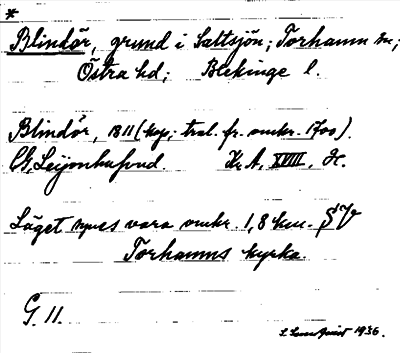 *
Blindör, grund i Saltsjön; Torhamn sn;
Östra hd; Blekinge l.
Blindör, 1811 (kop; tral. fr. omkr. 1700).
CG, Leijonhufvud. Kr. A, XVIII,
Läget synes vara omkr. 1,8 km. SV
Torhamns kyrka.
G. 11.
1936.